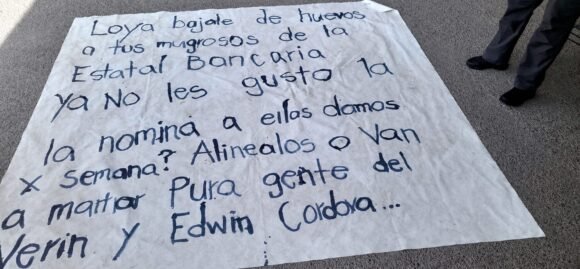 Loya bajale de huevos
a tus mugrosos de la
Estatal Bancaria
ya No les gusto la
la nomina a ellos damos
x semana? Alinealos o Van
a martiar Pura gente del
Verin y Edwin Cordova...